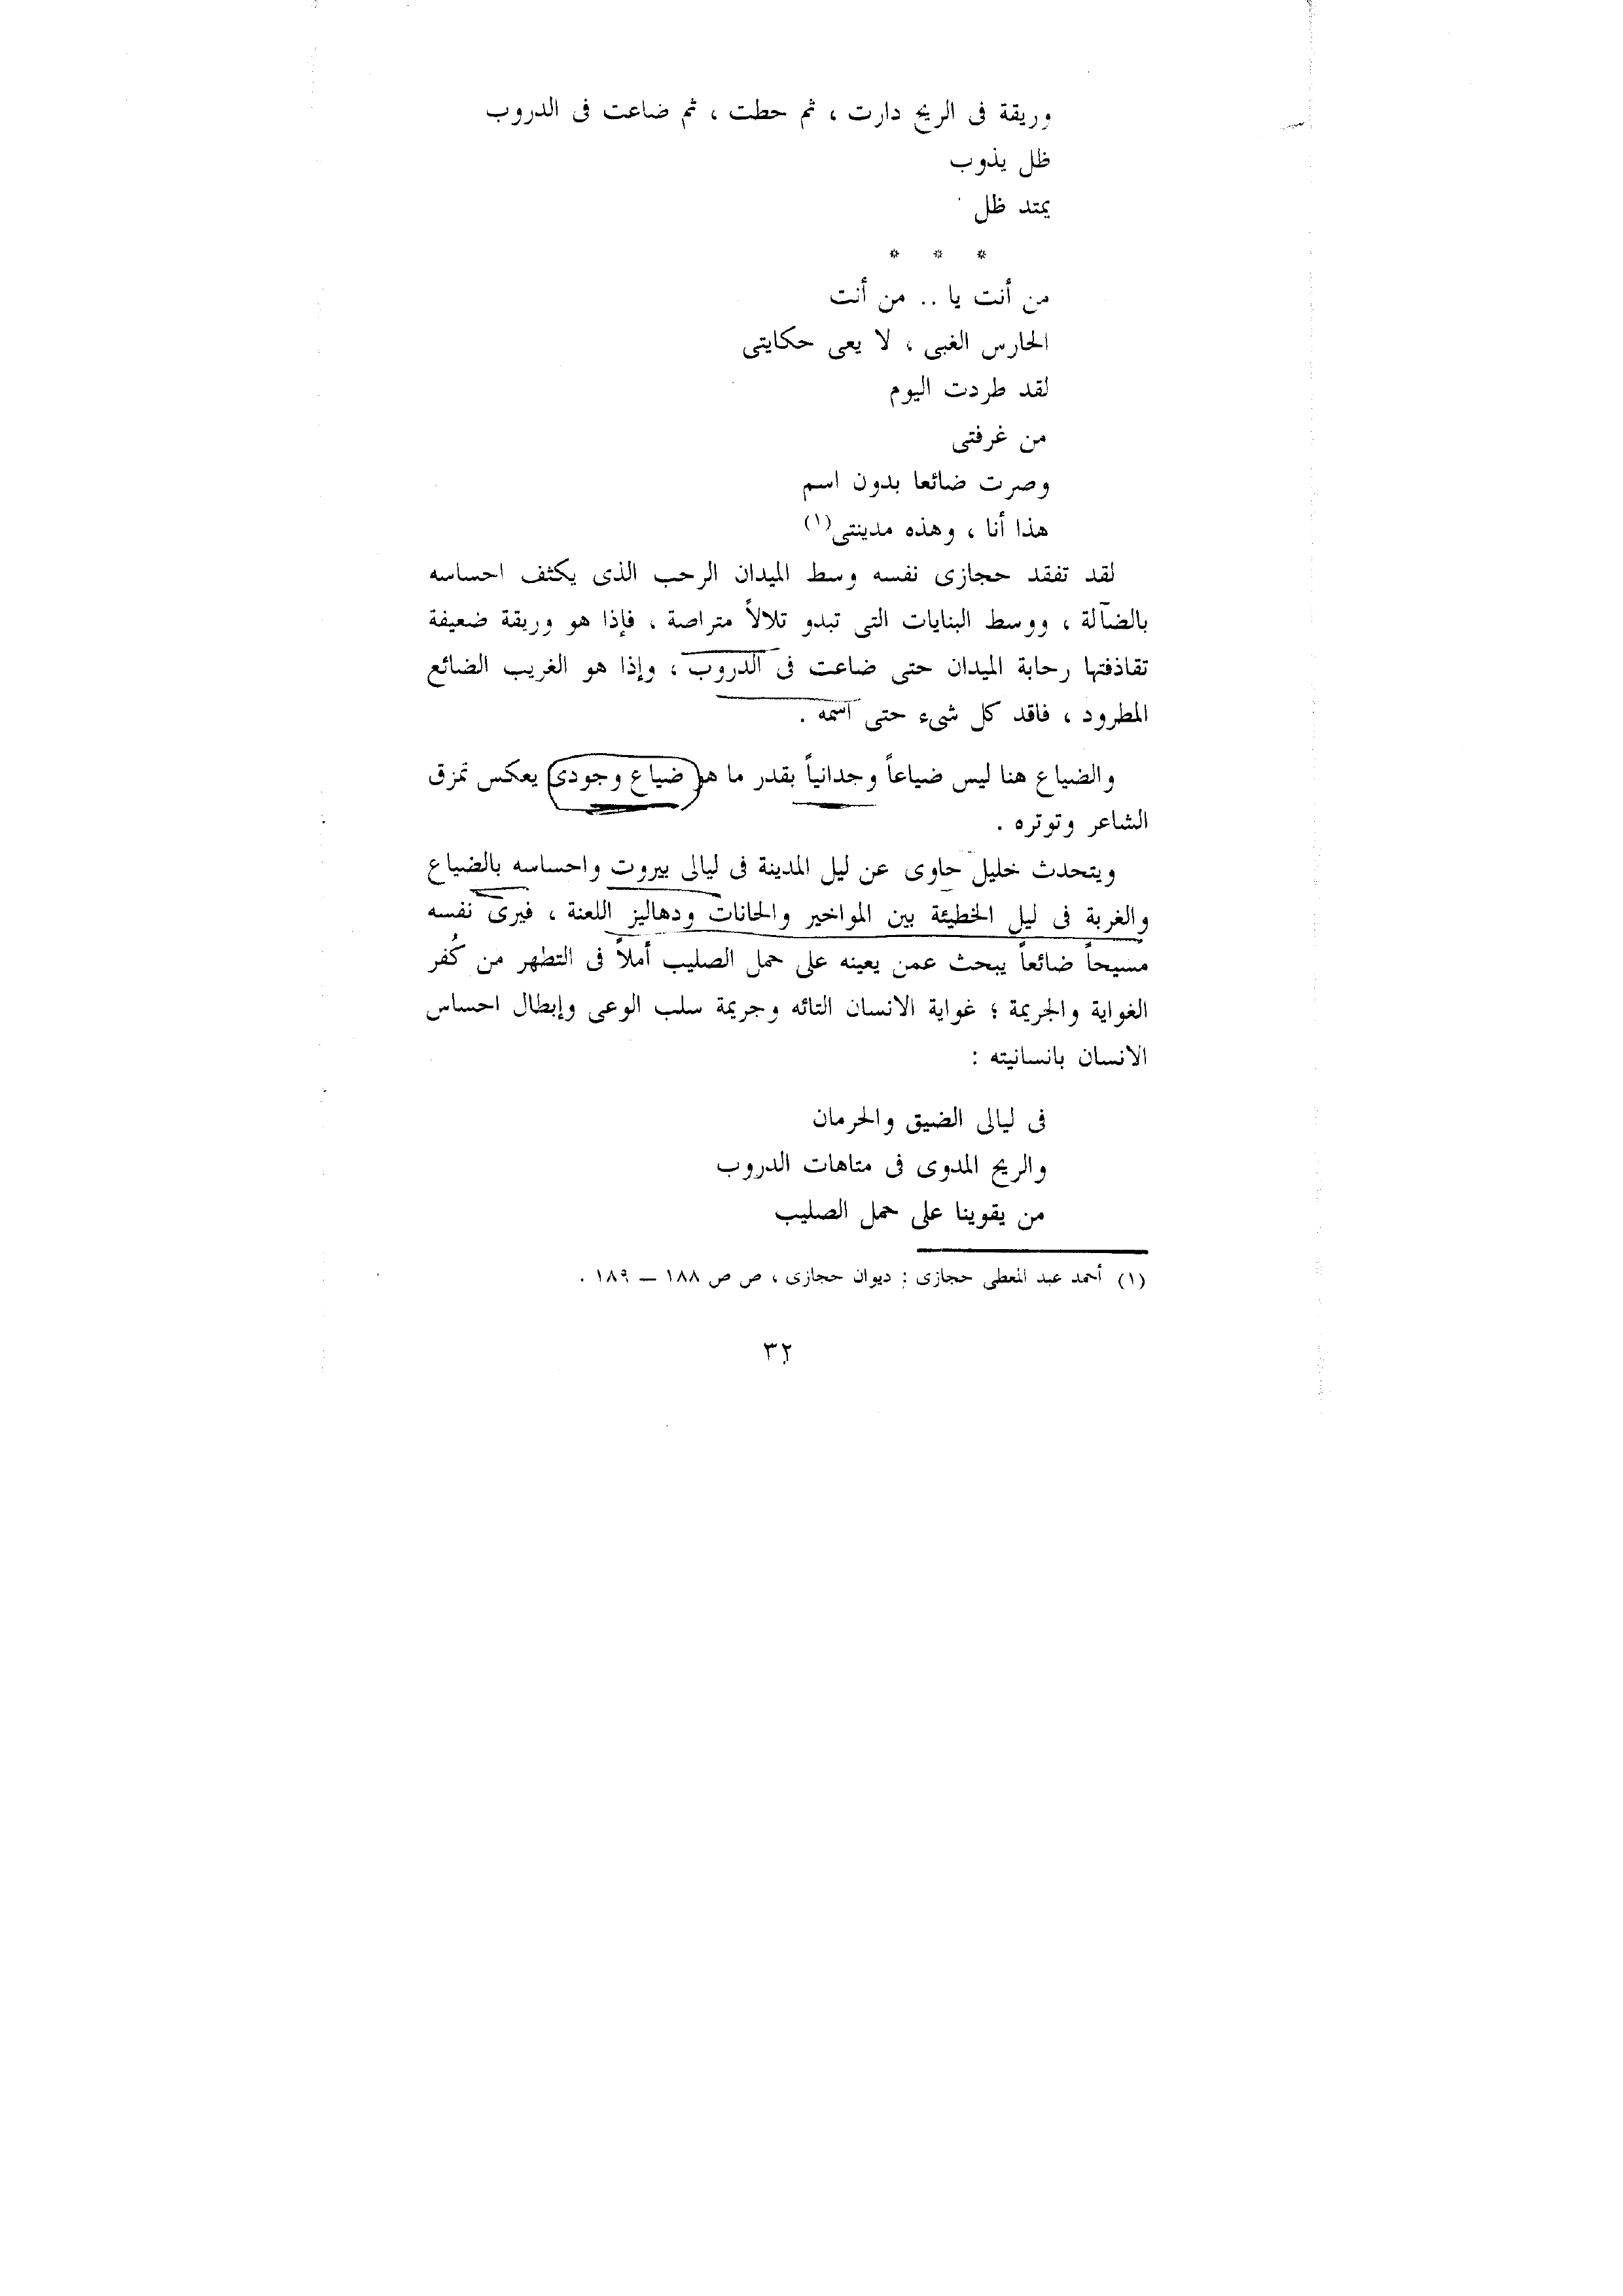 وريقة فى الريح دارت ، ثم حطت ، ثم ضاعت فى الدروب
ظل يذوب
يمتد ظل
* * *
من أنت يا .. من أنت
الحارس الغبى ، لا يعى حكايتى
لقد طردت اليوم
من غرفتى
وصرت ضائعا بدون اسم
هذا أنا ، وهذه مدينتى(١)
لقد تفقد حجازى نفسه وسط الميدان الرحب الذى يكثف احساسه
بالضآلة ، ووسط البنايات التى تبدو تلالاً متراصة ، فإذا هو وريقة ضعيفة
تقاذفتها رحابة الميدان حتى ضاعت فى الدروب ، وإذا هو الغريب الضائع
المطرود ، فاقد كل شىء حتى اسمه .
والضياع هنا ليس ضياعاً وجدانياً بقدر ما هو ضياع وجودى يعكس تمزق
الشاعر وتوتره .
ويتحدث خليل حاوى عن ليل المدينة فى ليالى بيروت واحساسه بالضياع
والغربة فى ليل الخطيئة بين المواخير والحانات ودهاليز اللعنة ، فيرى نفسه
مسيحاً ضائعاً يبحث عمن يعينه على حمل الصليب أملاً فى التطهر من كُفر
الغواية والجريمة ؛ غواية الانسان التائه وجريمة سلب الوعى وإبطال احساس
الانسان بانسانيته :
فى ليالى الضيق والحرمان
والريح المدوى فى متاهات الدروب
من يقوينا على حمل الصليب
(١) أحمد عبد المعطى حجازى : ديوان حجازى ، ص ص ١٨٨ – ١٨٩ .
٣٢